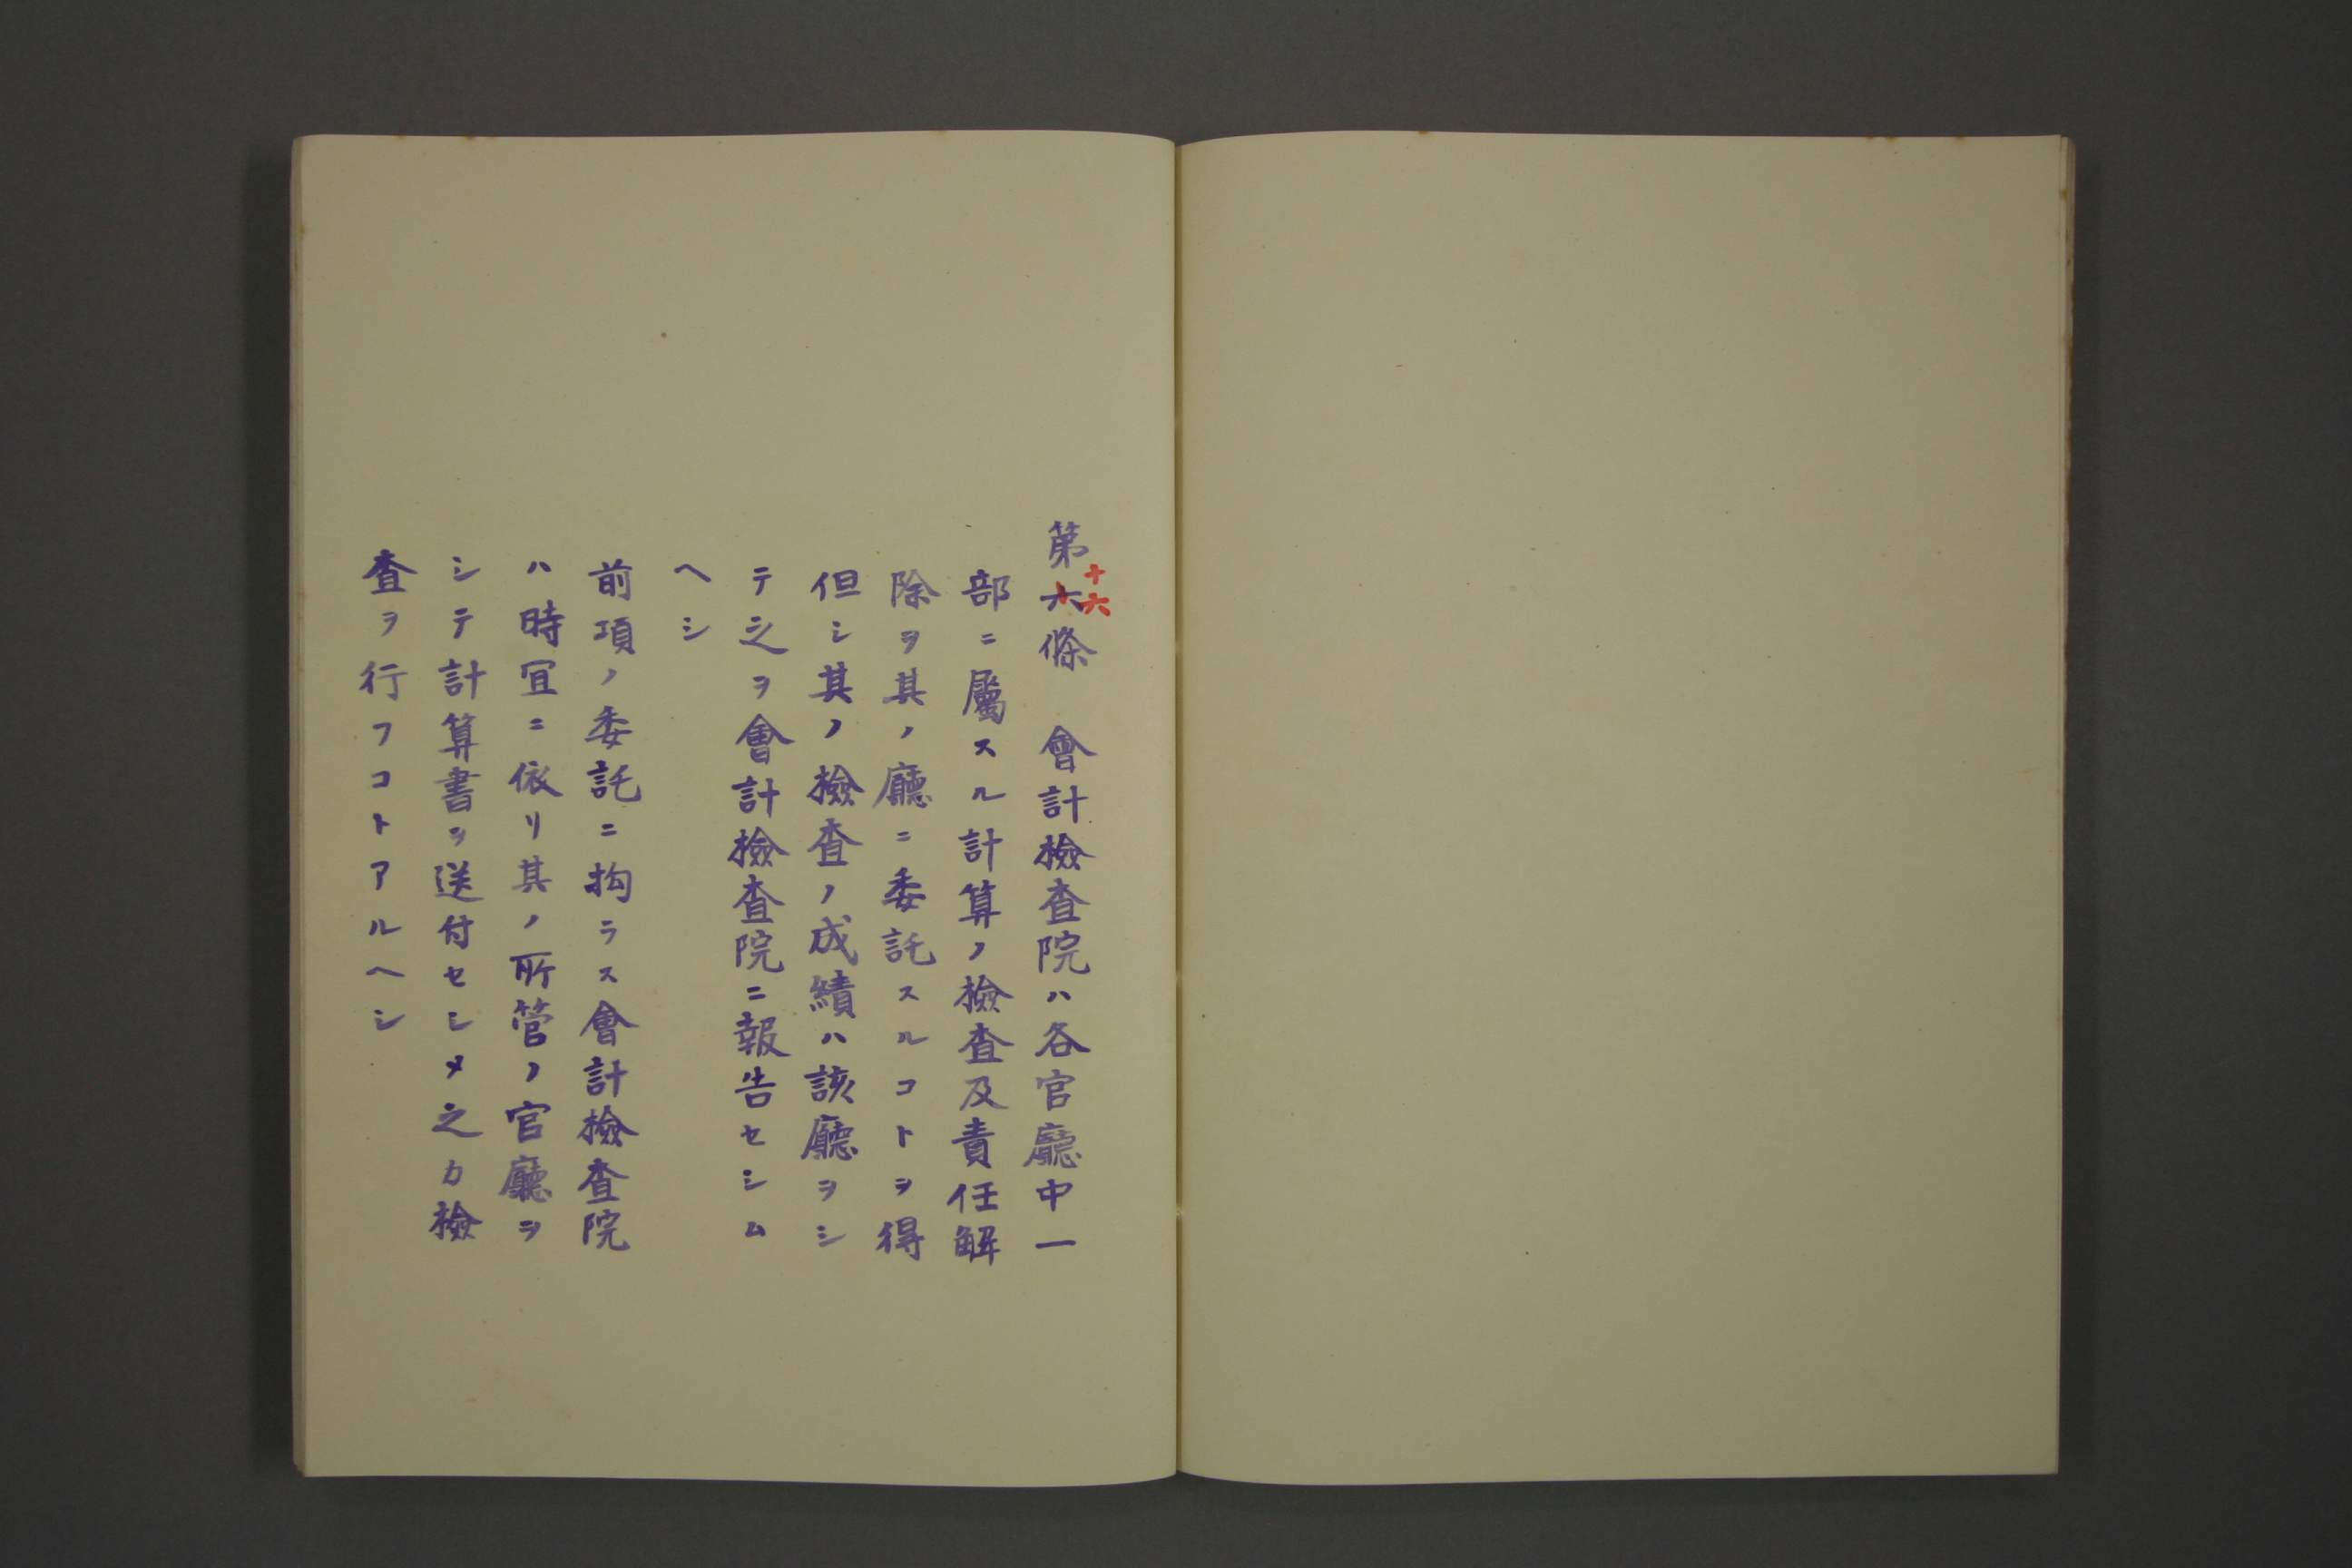 第六條　會計檢查院ハ各官廳中一
十六
部ニ屬スル計算ノ檢查及責任解
除ヲ其ノ廳ニ委託スルコトヲ得
但シ其ノ檢查ノ成績ハ該廳ヲシ
テ之ヲ會計檢查院ニ報告セシム
ヘシ
前項ノ委託ニ拘ラス會計檢查院
ハ時宜ニ依リ其ノ所管ノ官廳ヲ
シテ計算書ヲ送付セシメ之カ檢
查ヲ行フコトアルヘシ